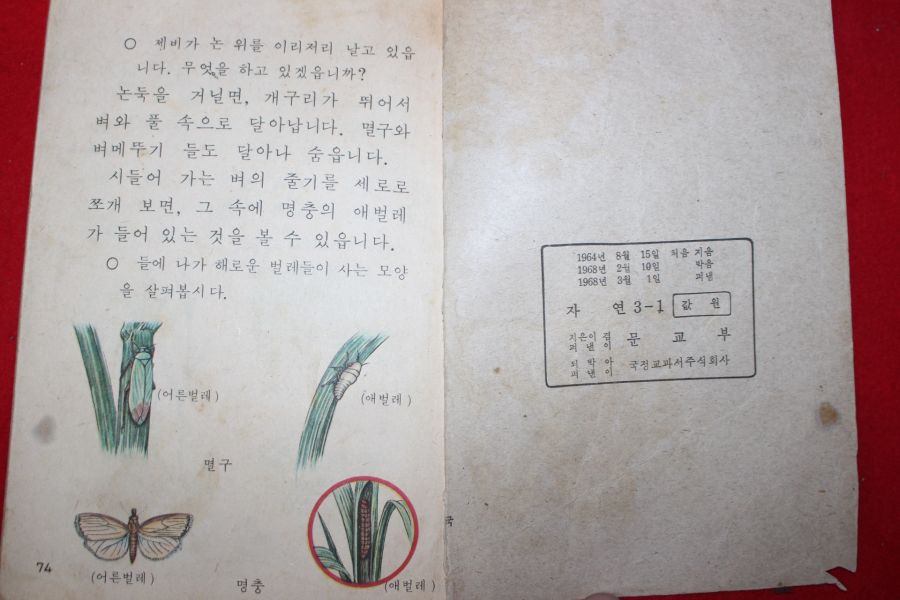 ○ 제비가 논 위를 이리저리 날고 있읍
니다. 무엇을 하고 있겠읍니까?
논둑을 거닐면, 개구리가 뛰어서
벼와 풀 속으로 달아납니다. 멸구와
벼메뚜기 들도 달아나 숨읍니다.
시들어 가는 벼의 줄기를 세로로
쪼개 보면, 그 속에 명충의 애벌레
가 들어 있는 것을 볼 수 있읍니다.
○ 들에 나가 해로운 벌레들이 사는 모양
을 살펴봅시다.
(어른벌레)
(애벌레)
멸구
(어른벌레)
명충
(애벌레)
74
국
1964년 8월 15일 처음 지음
1968년 2월 10일 박음
1968년 3월 1일 펴냄
자 연 3-1 값 원
지은이 겸
펴 낸 이 문 교 부
되 박 아
펴 낸 이 국정교과서주식회사